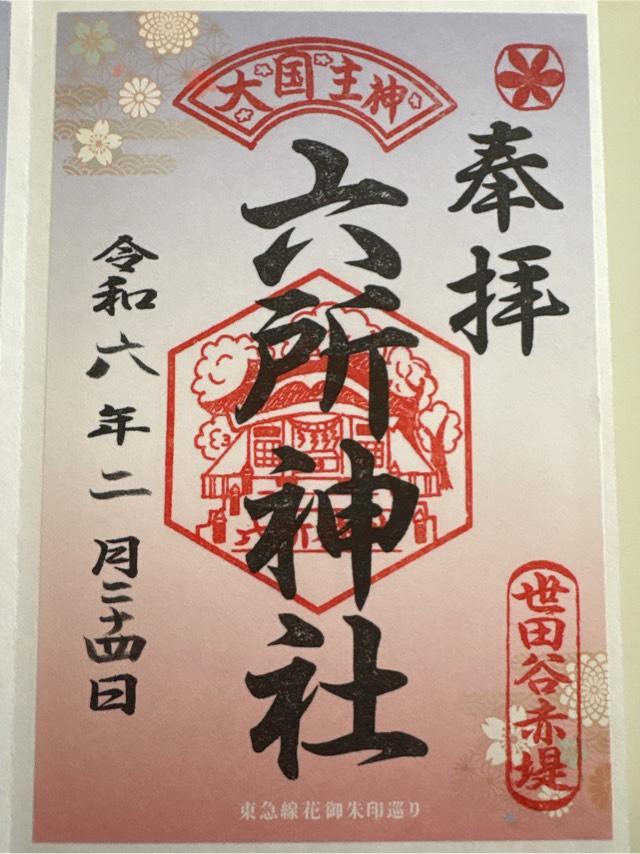 奉拝
大国主神
六所神社
令和六年二月二十四日
世田谷赤堤
東急線花御朱印巡り